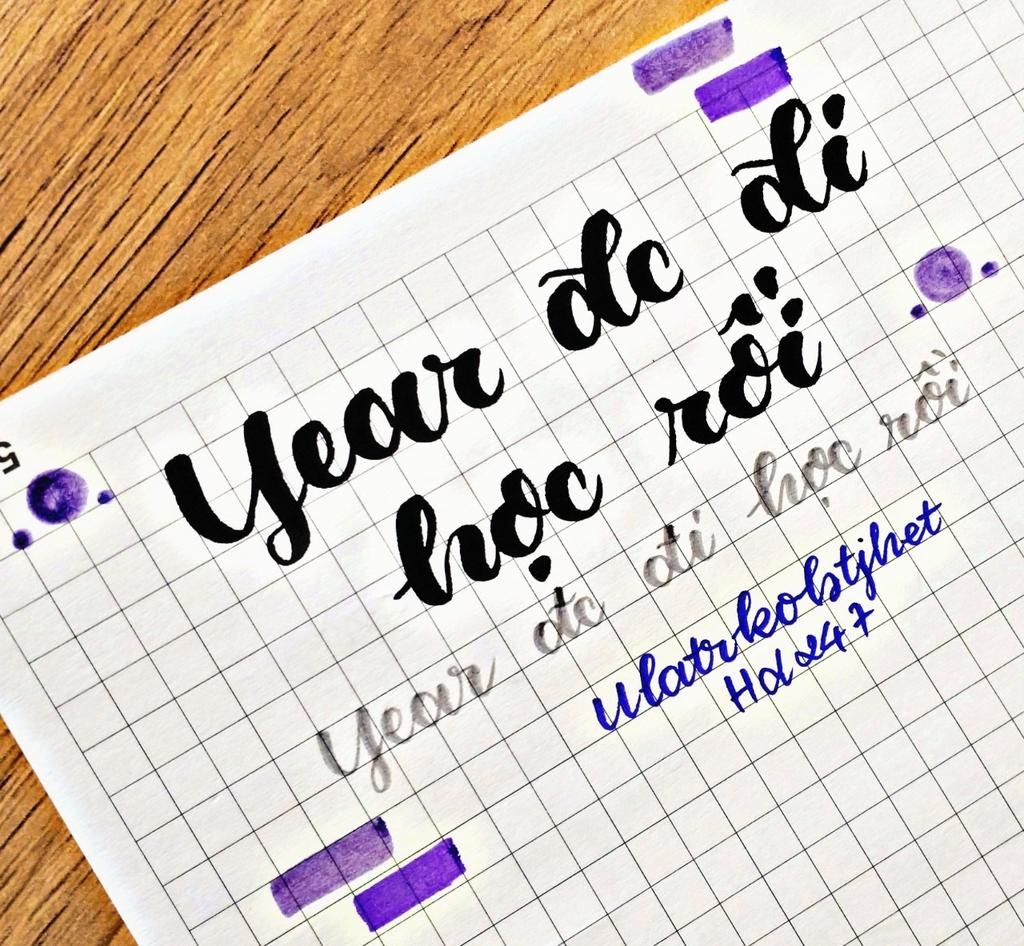 Year đc đi
học rồi
Year đc đi học rồi
ulatrkobtjhet
Hd 247
5